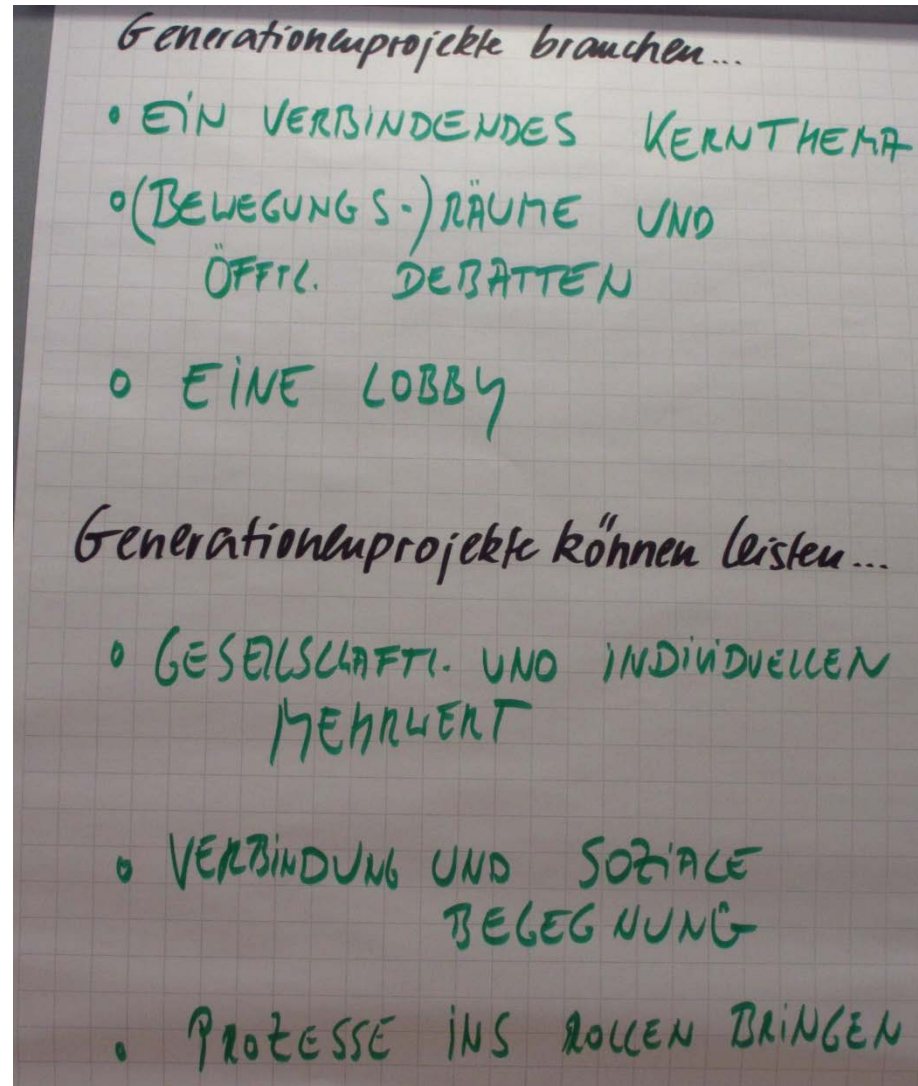 Generationenprojekte brauchen...
• EIN VERBINDENDES KERNTHEMA
• (BEWEGUNGS-) RÄUME UND
ÖFFTL. DEBATTEN
• EINE LOBBY
Generationenprojekte können leisten...
• GESELLSCHAFTL. UND INDIVIDUELLEN
MEHRWERT
• VERBINDUNG UND SOZIALE
BEGEGNUNG
• PROZESSE INS ROLLEN BRINGEN